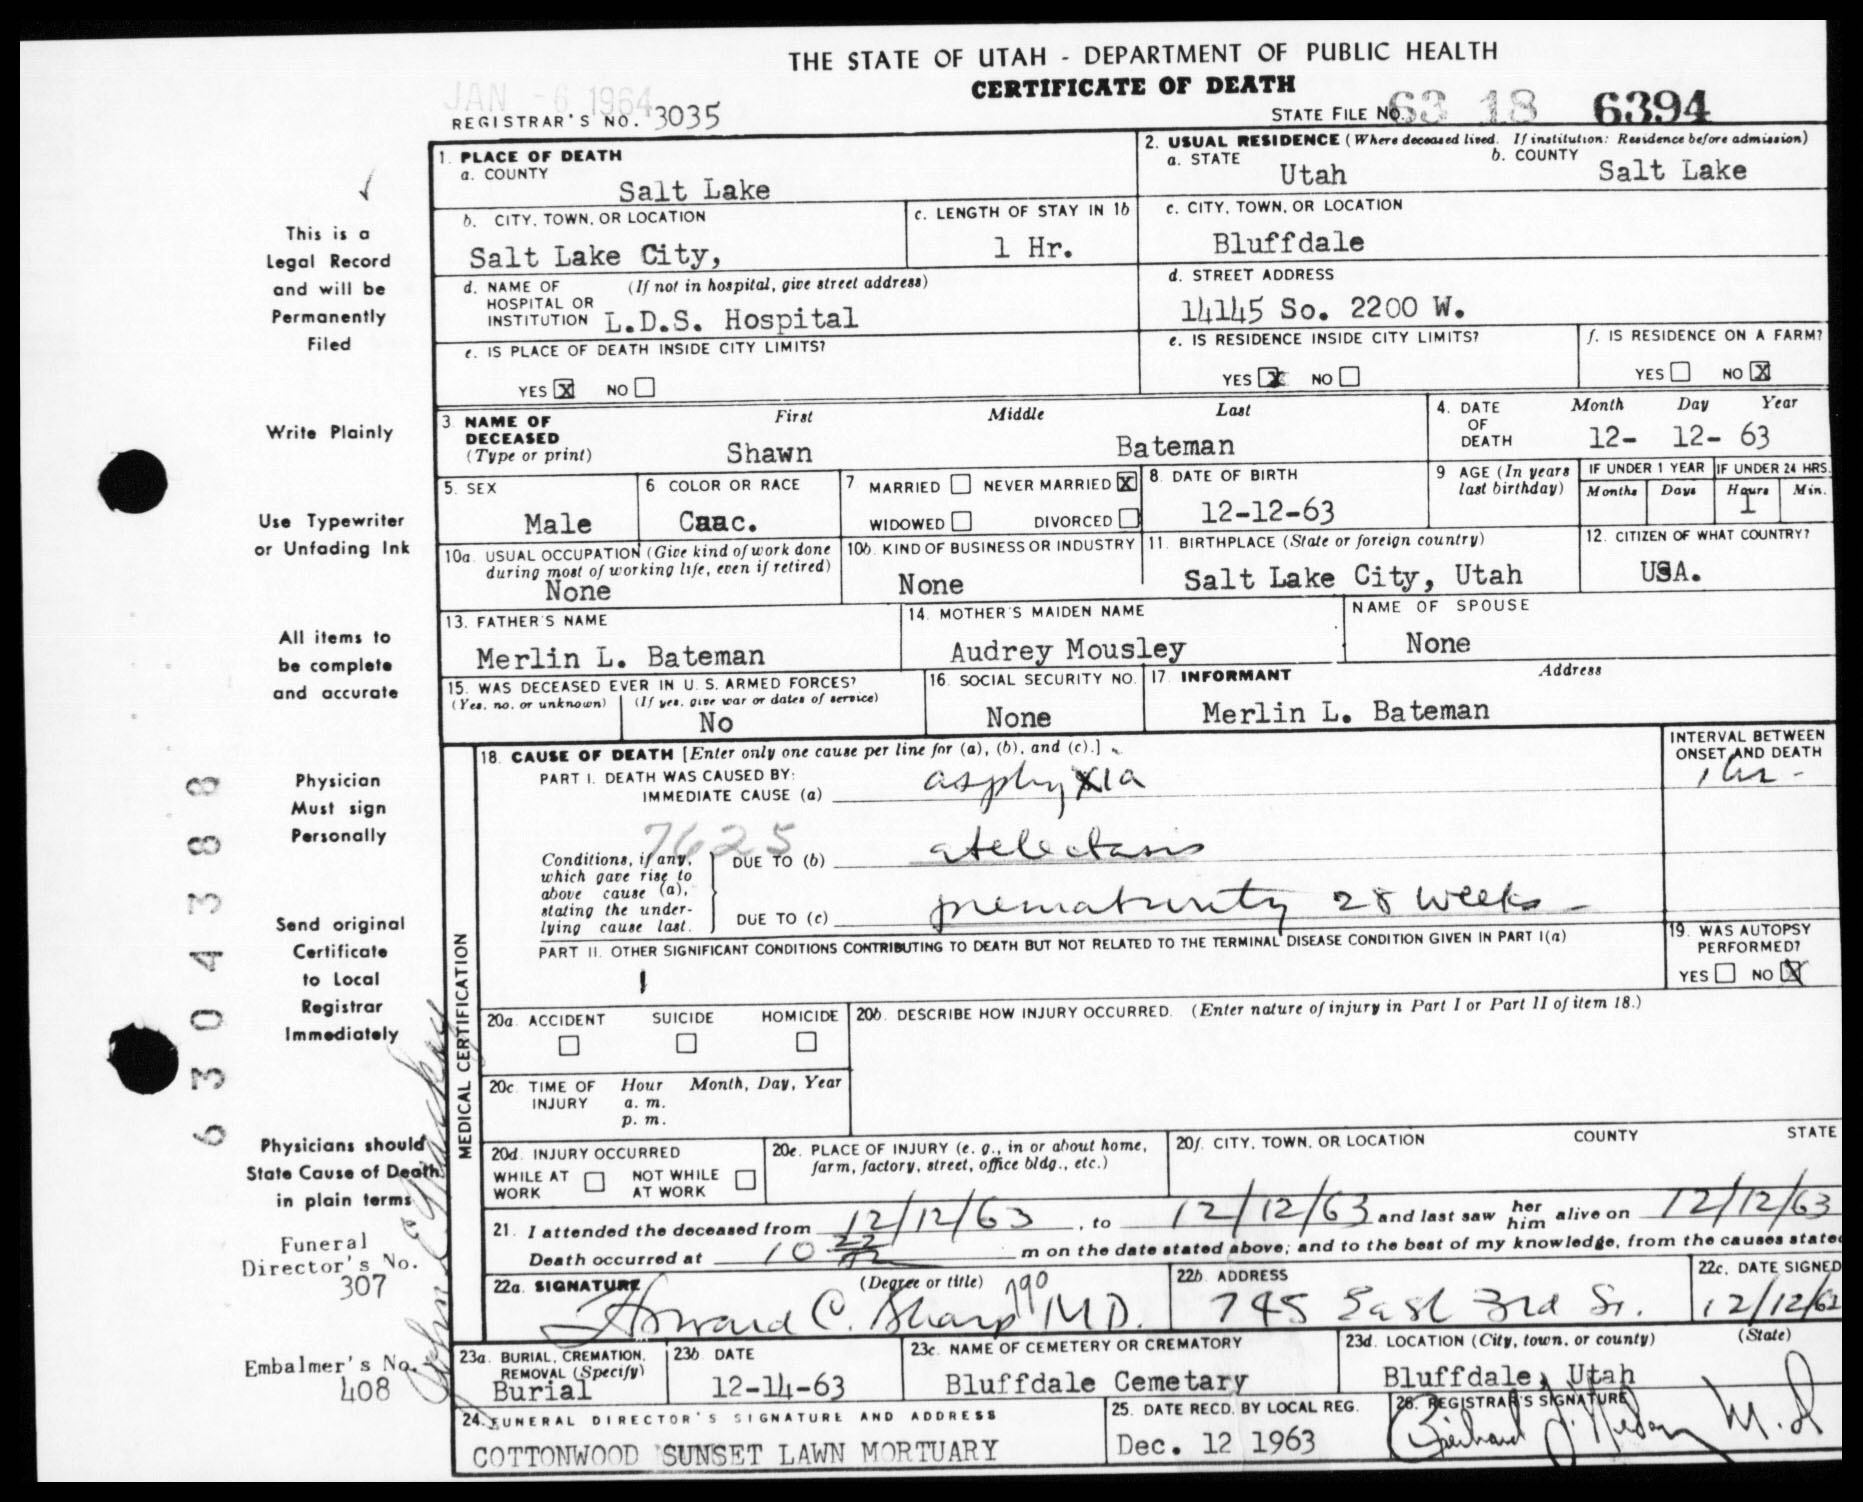 THE STATE OF UTAH - DEPARTMENT OF PUBLIC HEALTH
CERTIFICATE OF DEATH
JAN - 6 1964
REGISTRAR'S NO. 3035
STATE FILE NO. 63 18 6394
1. PLACE OF DEATH
a. COUNTY
Salt Lake
2. USUAL RESIDENCE (Where deceased lived. If institution: Residence before admission)
a. STATE
Utah
b. COUNTY
Salt Lake
b. CITY, TOWN, OR LOCATION
Salt Lake City,
c. LENGTH OF STAY IN 1b
1 Hr.
c. CITY, TOWN, OR LOCATION
Bluffdale
d. NAME OF HOSPITAL OR INSTITUTION
(If not in hospital, give street address)
L.D.S. Hospital
d. STREET ADDRESS
14145 So. 2200 W.
e. IS PLACE OF DEATH INSIDE CITY LIMITS?
YES X NO
e. IS RESIDENCE INSIDE CITY LIMITS?
YES X NO
f. IS RESIDENCE ON A FARM?
YES NO X
3 NAME OF DECEASED
(Type or print)
First
Shawn
Middle
Last
Bateman
4. DATE OF DEATH
Month Day Year
12- 12- 63
5. SEX
Male
6 COLOR OR RACE
Caac.
7 MARRIED NEVER MARRIED X
WIDOWED DIVORCED
8. DATE OF BIRTH
12-12-63
9 AGE (In years last birthday)
IF UNDER 1 YEAR
Months Days
IF UNDER 24 HRS.
Hours Min.
1
10a. USUAL OCCUPATION (Give kind of work done during most of working life, even if retired)
None
10b. KIND OF BUSINESS OR INDUSTRY
None
11. BIRTHPLACE (State or foreign country)
Salt Lake City, Utah
12. CITIZEN OF WHAT COUNTRY?
USA.
13. FATHER'S NAME
Merlin L. Bateman
14. MOTHER'S MAIDEN NAME
Audrey Mousley
NAME OF SPOUSE
None
15. WAS DECEASED EVER IN U. S. ARMED FORCES?
(Yes, no, or unknown) (If yes, give war or dates of service)
No
16. SOCIAL SECURITY NO.
None
17. INFORMANT
Address
Merlin L. Bateman
MEDICAL CERTIFICATION
18. CAUSE OF DEATH [Enter only one cause per line for (a), (b), and (c).]
PART I. DEATH WAS CAUSED BY:
IMMEDIATE CAUSE (a) asphyxia
INTERVAL BETWEEN ONSET AND DEATH
1 hr -
7625
Conditions, if any, which gave rise to above cause (a), stating the underlying cause last.
DUE TO (b) atelectasis
DUE TO (c) prematurity 28 weeks -
PART II. OTHER SIGNIFICANT CONDITIONS CONTRIBUTING TO DEATH BUT NOT RELATED TO THE TERMINAL DISEASE CONDITION GIVEN IN PART I(a)
1
19. WAS AUTOPSY PERFORMED?
YES NO X
20a. ACCIDENT SUICIDE HOMICIDE
20b. DESCRIBE HOW INJURY OCCURRED. (Enter nature of injury in Part I or Part II of item 18.)
20c. TIME OF INJURY
Hour Month, Day, Year
a. m.
p. m.
20d. INJURY OCCURRED
WHILE AT WORK
NOT WHILE AT WORK
20e. PLACE OF INJURY (e. g., in or about home, farm, factory, street, office bldg., etc.)
20f. CITY, TOWN, OR LOCATION COUNTY STATE
21. I attended the deceased from 12/12/63, to 12/12/63 and last saw her him alive on 12/12/63
Death occurred at 10 22 m on the date stated above; and to the best of my knowledge, from the causes stated
22a. SIGNATURE (Degree or title)
Howard C. Sharp M.D.
790
22b. ADDRESS
745 East 3rd So.
22c. DATE SIGNED
12/12/63
23a. BURIAL, CREMATION, REMOVAL (Specify)
Burial
23b DATE
12-14-63
23c. NAME OF CEMETERY OR CREMATORY
Bluffdale Cemetary
23d. LOCATION (City, town, or county) (State)
Bluffdale, Utah
24. FUNERAL DIRECTOR'S SIGNATURE AND ADDRESS
COTTONWOOD SUNSET LAWN MORTUARY
25. DATE RECD. BY LOCAL REG.
Dec. 12 1963
26. REGISTRAR'S SIGNATURE
M.D
This is a
Legal Record
and will be
Permanently
Filed
Write Plainly
Use Typewriter
or Unfading Ink
All items to
be complete
and accurate
Physician
Must sign
Personally
Send original
Certificate
to Local
Registrar
Immediately
Physicians should
State Cause of Death
in plain terms
Funeral
Director's No.
307
Embalmer's No.
408
6304388